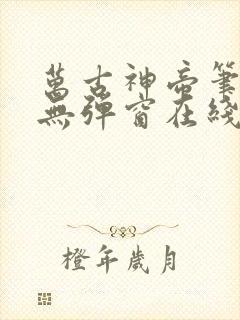 萬古神帝筆
無彈窗在綫
橙年歲月